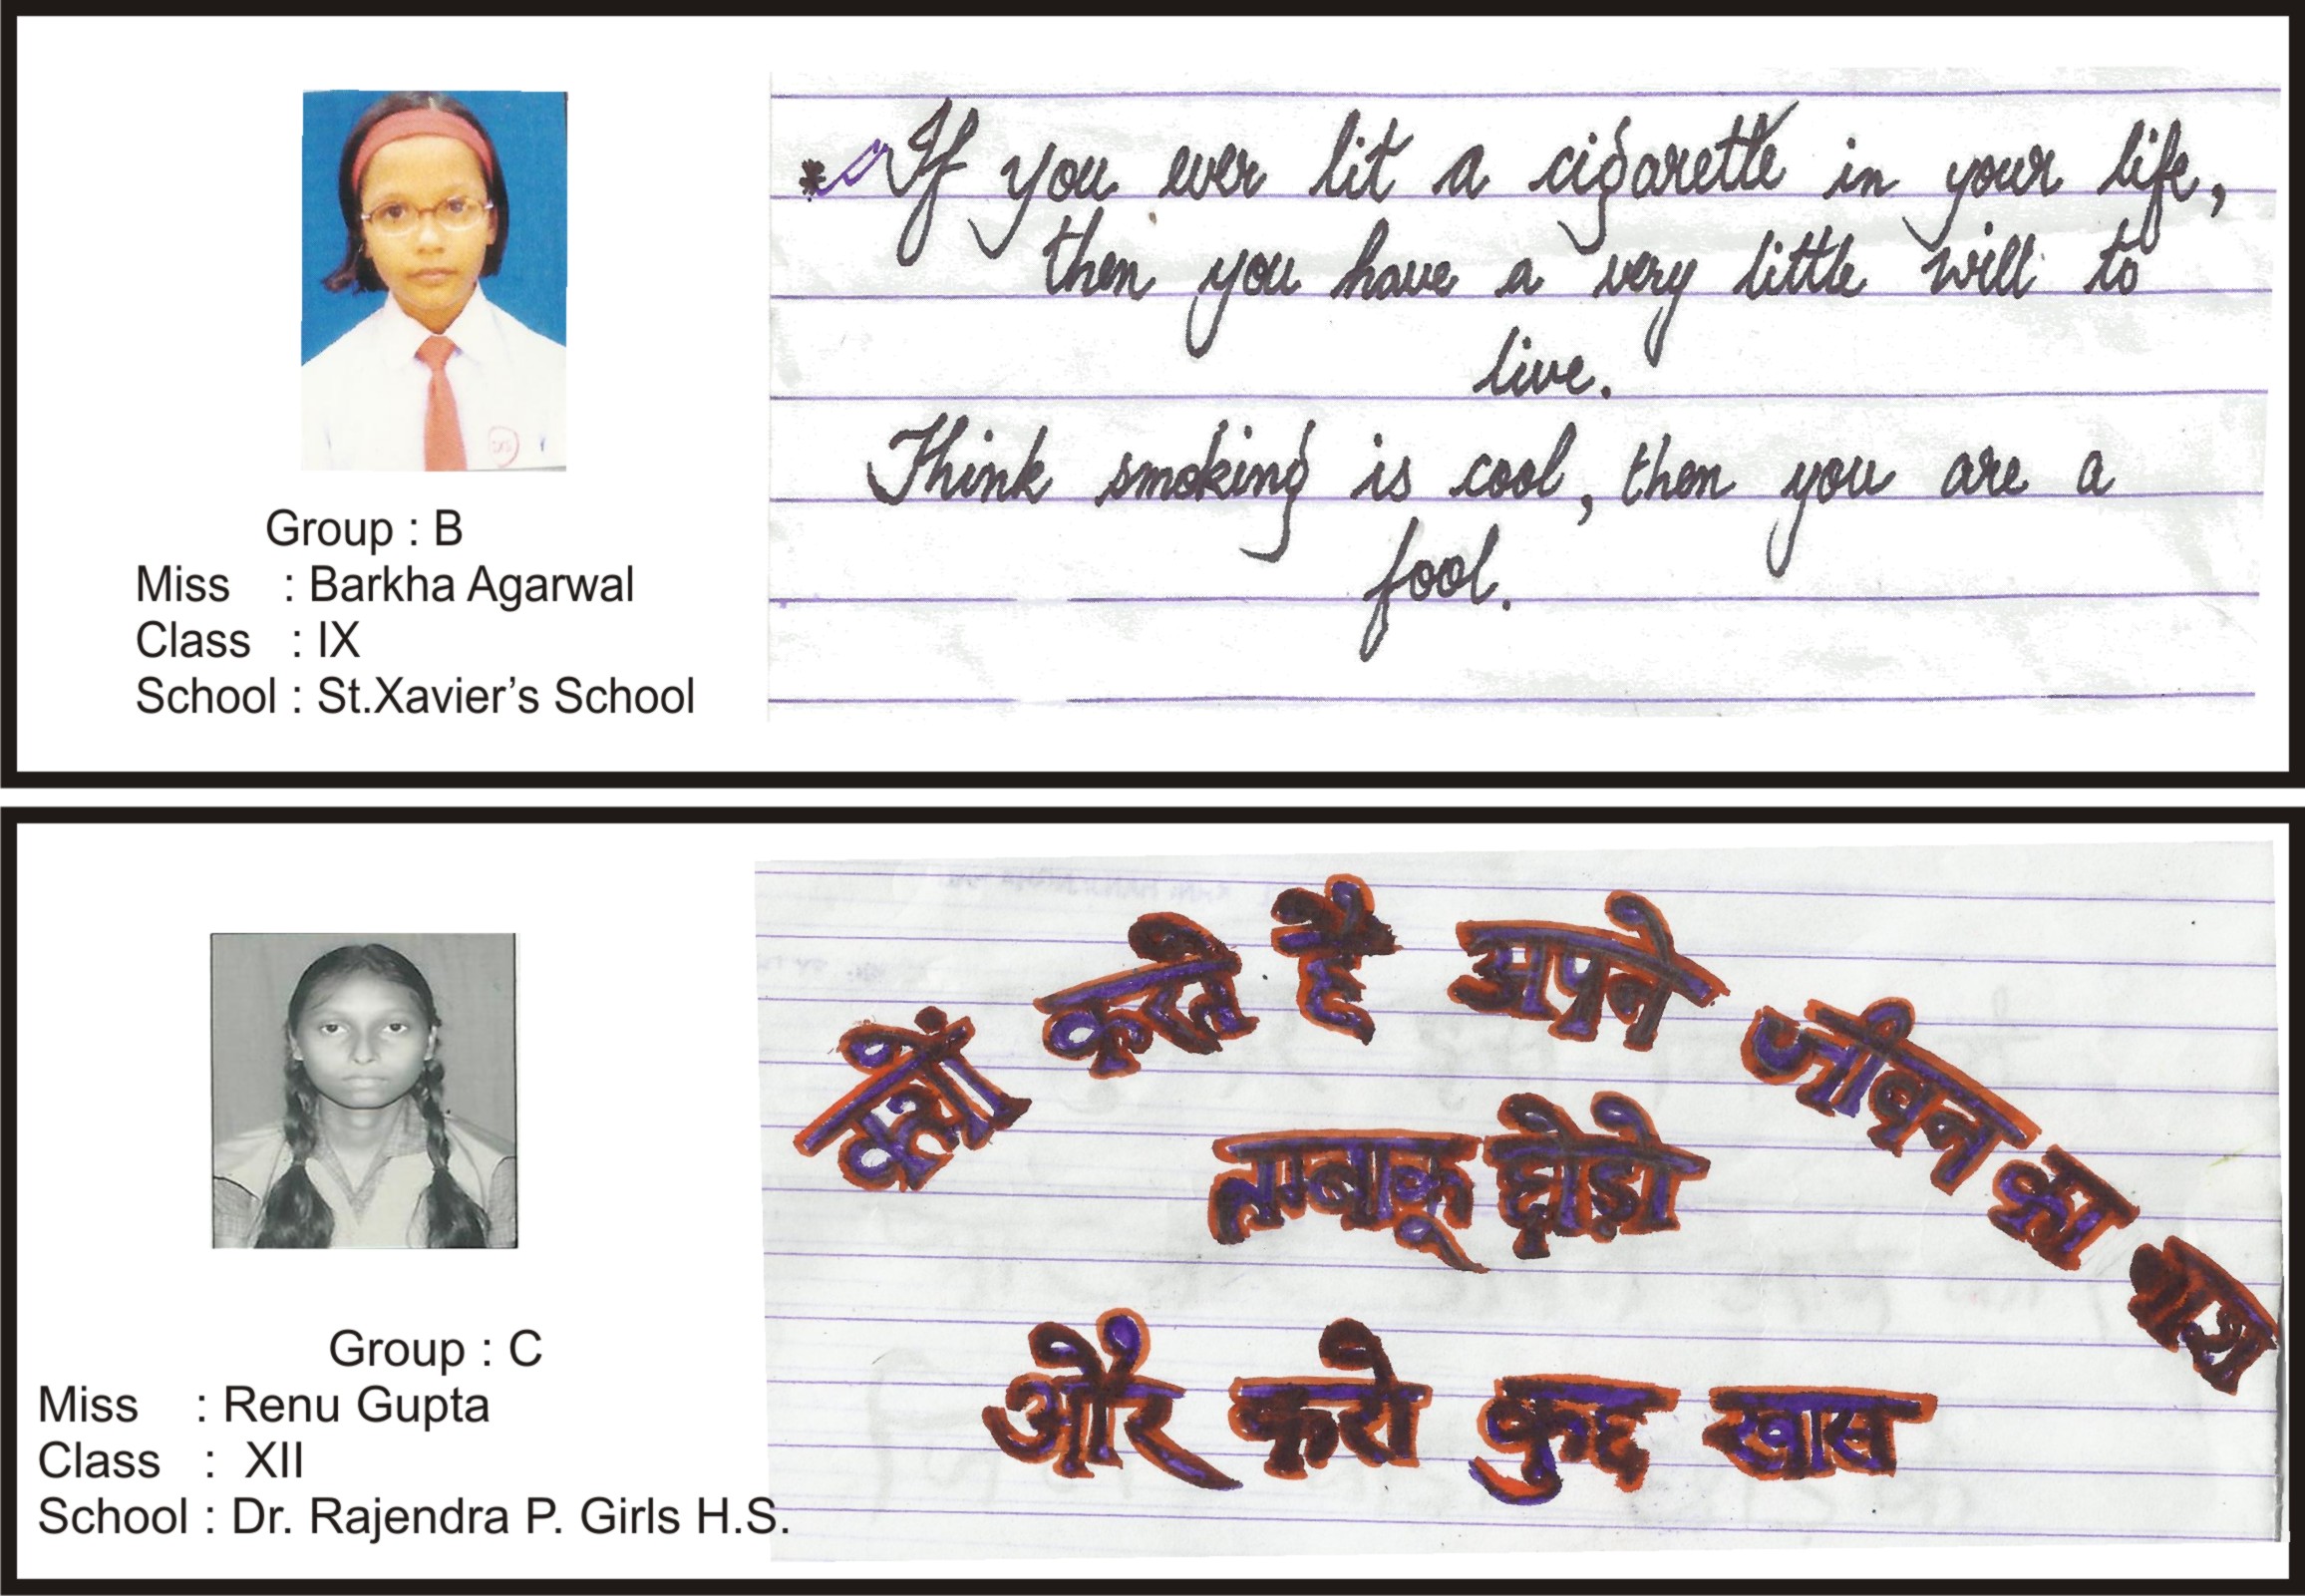 Group : B
Miss : Barkha Agarwal
Class : IX
School : St.Xavier's School
If you ever lit a cigarette in your life,
then you have a very little will to
live.
Think smoking is cool, then you are a
fool.
Group : C
Miss : Renu Gupta
Class : XII
School : Dr. Rajendra P. Girls H.S.
क्यों करते हैं अपने जीवन का नाश
तम्बाकू छोड़ो
और करो कुछ खास